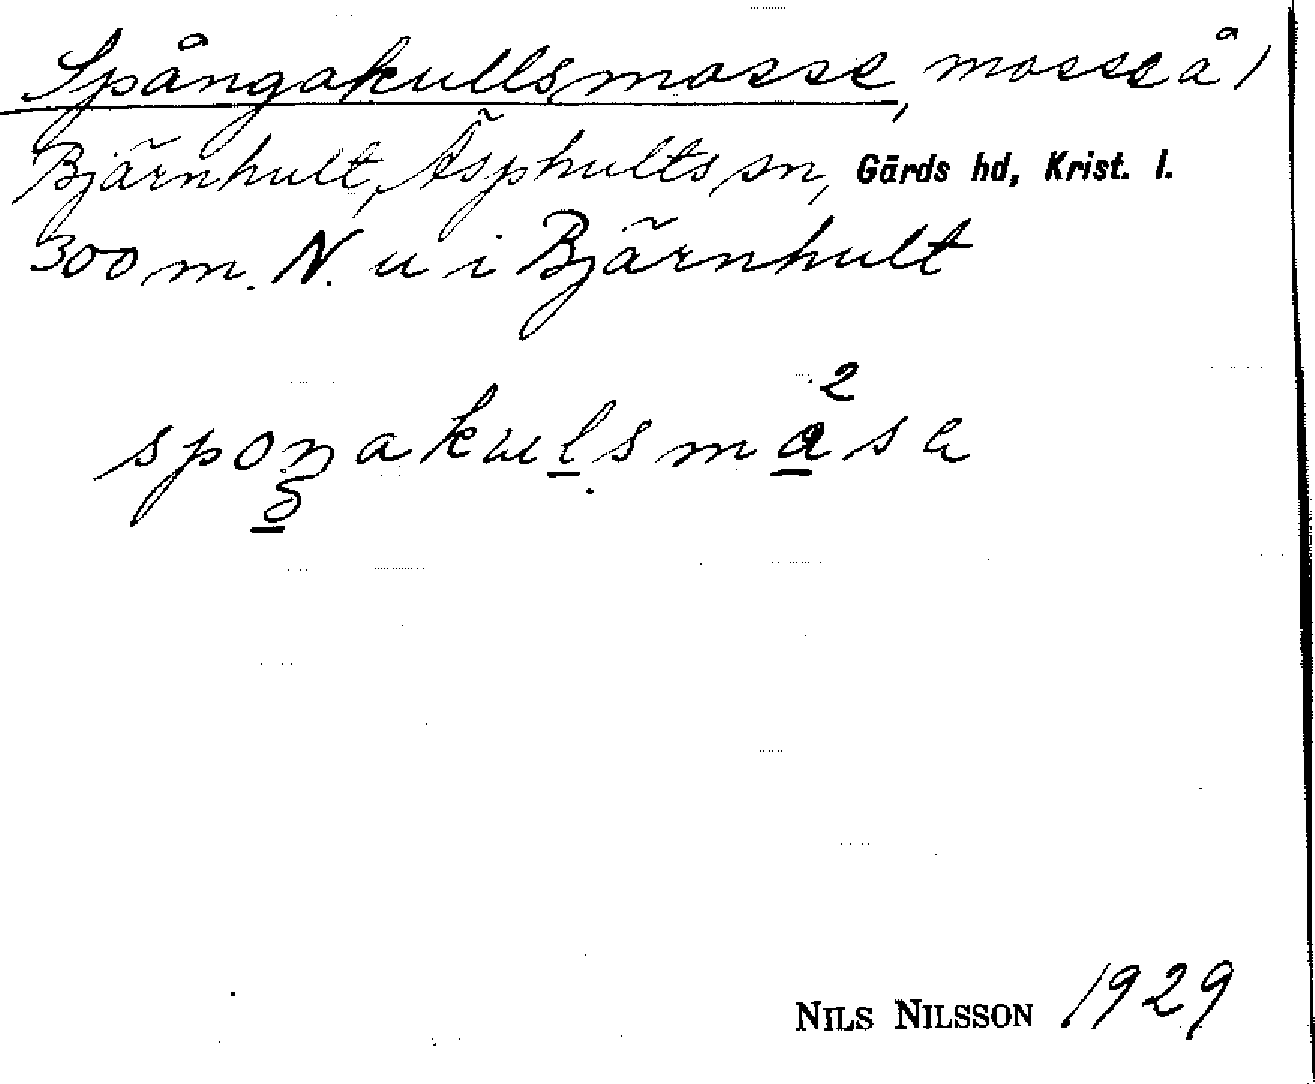 Spångakullsmosse, mosse å 1
Bjärnhult, Äsphults sn, Gärds hd, Krist. l.
300 m. N. u i Bjärnhult
NILS NILSSON 1929